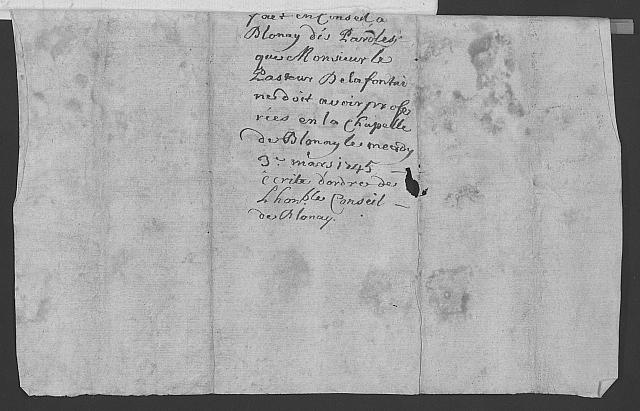 fait en Conseil a
Blonay dés Paroles
que Monsieur le
Pasteur Delafontai
ne doit avoir profe
rées en la Chapelle
de Blonay le mecrdy
3.e mars 1745
Ecrite d'ordre de
Lhon.ble Conseil
de Blonay.